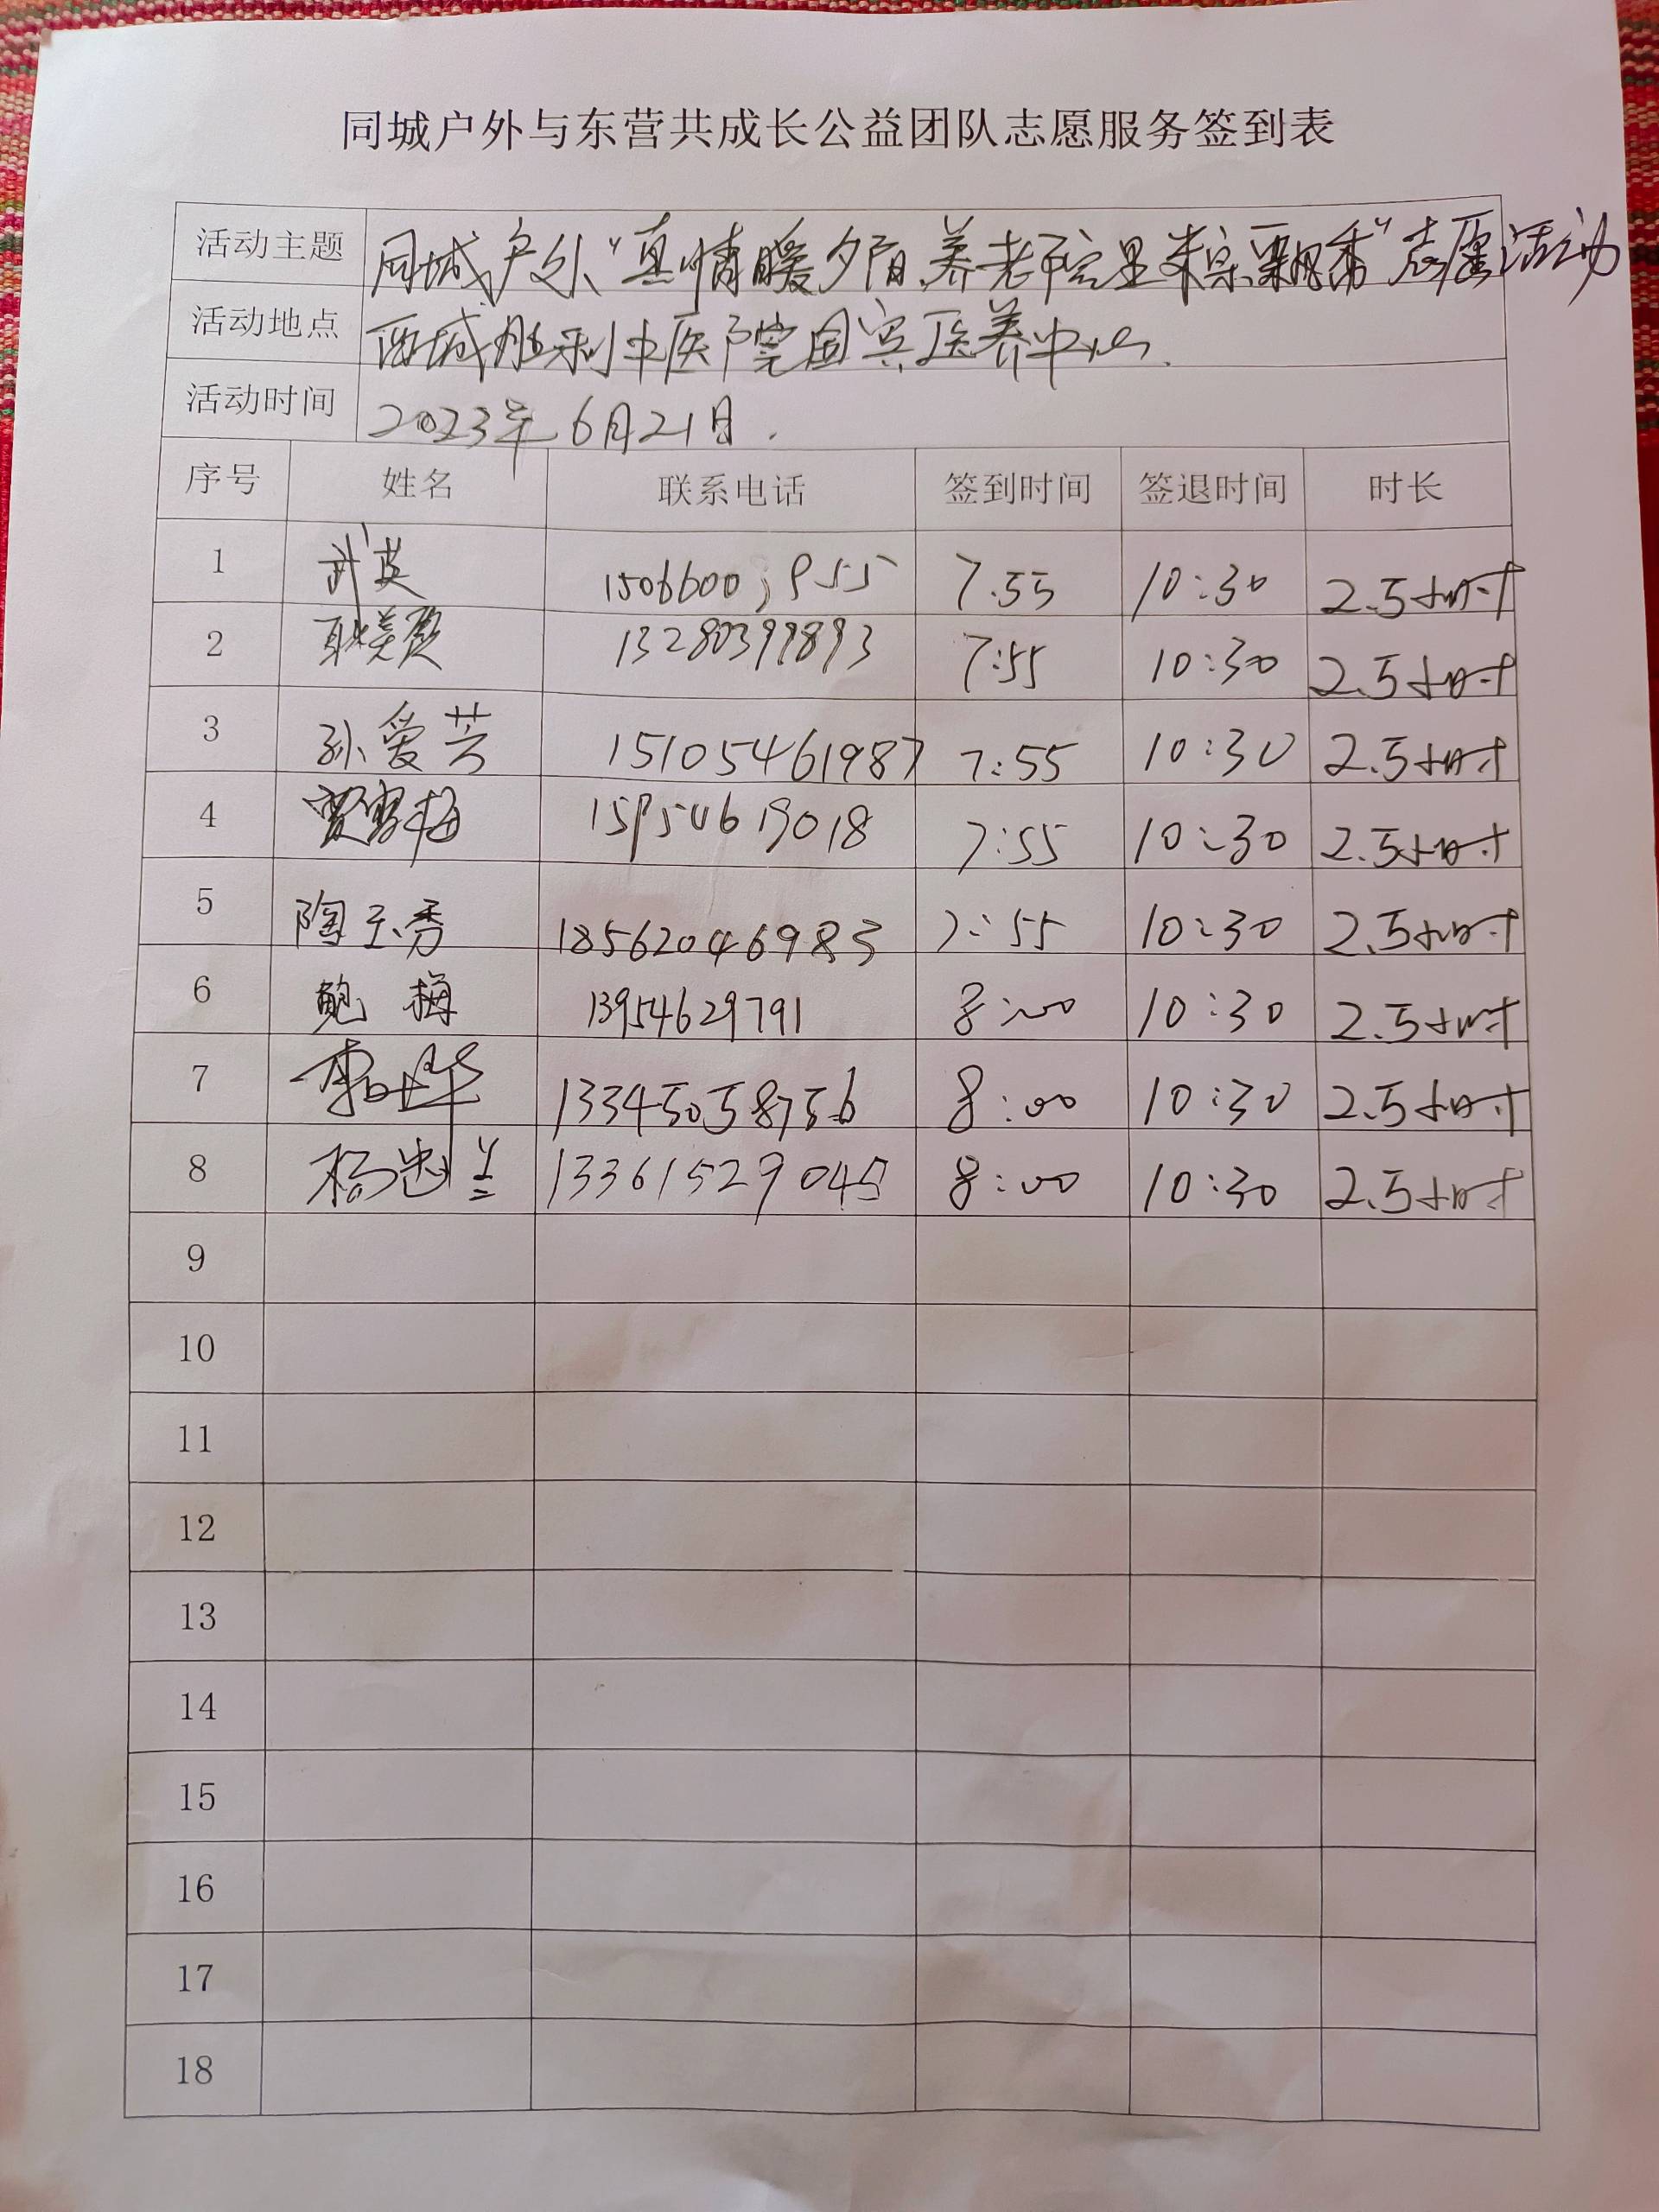 同城户外与东营共成长公益团队志愿服务签到表
活动主题 同城户外"真情暖夕阳,养老院里来粽飘香"志愿活动
活动地点 西城胜利中医院国宾医养中心.
活动时间 2023年6月21日.
序号 姓名 联系电话 签到时间 签退时间 时长
1 武英 7.55 10:30 2.5小时
2 耿美霞 13280399893 7:55 10:30 2.5小时
3 孙爱芳 15105461987 7:55 10:30 2.5小时
4 贾雪梅 15954619018 7:55 10:30 2.5小时
5 陶玉秀 18562046983 7:55 10:30 2.5小时
6 鲍梅 13954629791 8:00 10:30 2.5小时
7 13345058756 8:00 10:30 2.5小时
8 杨忠兰 13361529045 8:00 10:30 2.5小时
9
10
11
12
13
14
15
16
17
18